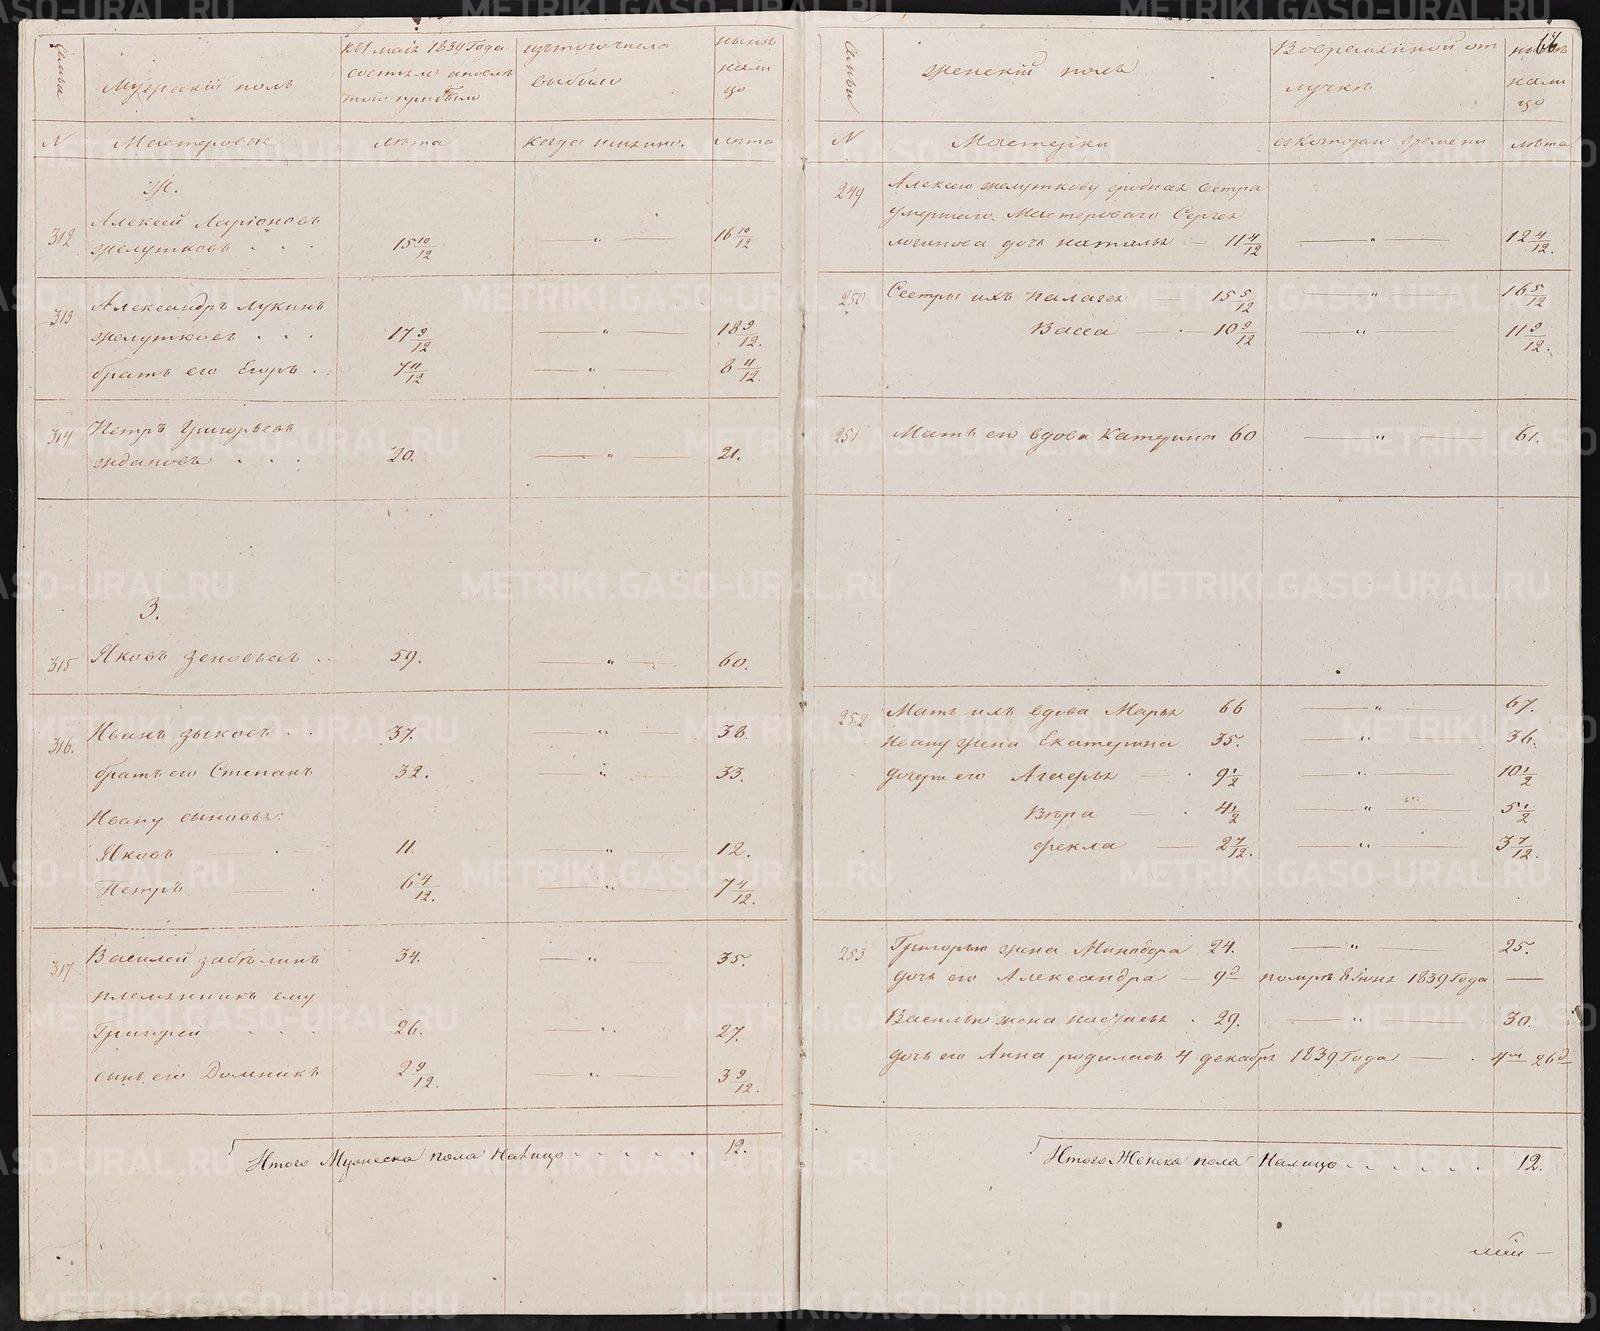 Семьи
Мужескій полъ
къ 1 маія 1839 года
состояло и послѣ
того прибыло
изъ того числа
выбыло
нынѣ
нали
цо
N
Мастеровые
лѣта
когда именно.
лѣта
Ж.
312
Алексей Ларіоновъ
Желутковъ . . .
15 10/12
— „ —
16 10/12
313
Александръ Лукинъ
Желутковъ . . .
17 9/12
— „ —
18 9/12.
братъ его Егоръ .
7 11/12
— „ —
8 11/12.
314
Петръ Григорьевъ
Ждановъ . . .
20.
— „ —
21.
З.
315
Яковъ Зеновьевъ . .
59.
— „ —
60.
316.
Иванъ Зыковъ . .
37.
„
38.
братъ его Степанъ
32.
„
33.
Ивану сыновья:
Яковъ — .
11.
— „ —
12.
Петръ — .
6 4/12.
— „ —
7 4/12.
317
Василей Забѣлинъ
34.
— „ —
35.
племянникъ ему
Григорей . . .
26.
„
27.
сынъ его Домникъ
2 9/12.
— „ —
3 9/12.
Итого Мужеска пола Налицо . . . . . .
12.
Семьи
женскій полъ
Во временной от
лучкѣ
нынѣ
нали
цо
N
Мастерки
съ котораго времени
лѣта
249
Алексею Желуткову сродная сестра
умершаго Мастероваго Сергея
Логинова дочь Наталья — 11 4/12
— „ —
12 4/12.
250
Сестры ихъ Палагея — 15 5/12
— „ —
16 5/12
Васса — . — 10 9/12
— „ —
11 9/12.
251
Мать его вдова Катерина 60
— „ —
61.
252
Мать ихъ вдова Марья 66
— „
67.
Ивану жена Екатерина 35.
— „ —
36.
дочери его Агаѳья — . 9 1/2
— „ —
10 1/2
Вѣра — . 4 1/2
— „ —
5 1/2
Фекла — 2 7/12.
— „ —
3 7/12.
253
Григорью жена Минодора 24.
— „
25.
дочь его Александра — 9 д
помръ 8 июня 1839 года
—
Василью жена Настасья . 29.
— „ —
30.
дочь его Анна родилась 4 декабря 1839 года — . 4 м 26 д
Итого Женска пола Налицо . . . . . .
12.
METRIKI.GASO-URAL.RU